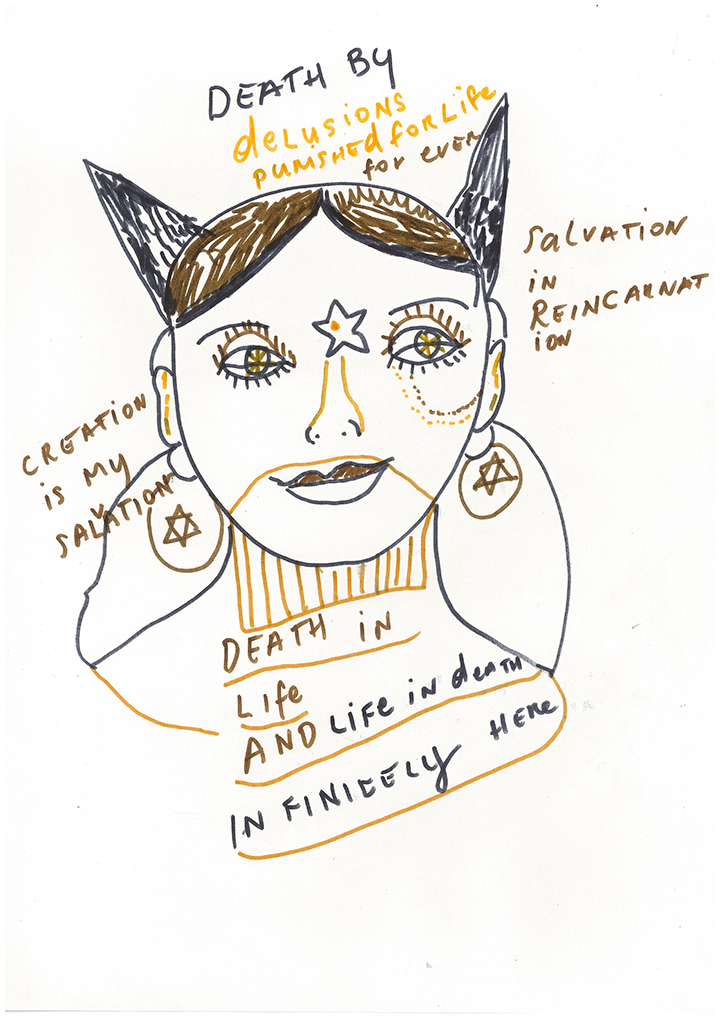 DEATH BY
deLUSIONS
PUMISHED FOR LIFE
for ever
SALVATION
IN
REINCARNAT
ION
CREATION
iS MY
SALVATION
DEATH IN
LIfe
AND LIFE IN deATH
INFINIEELY HERe